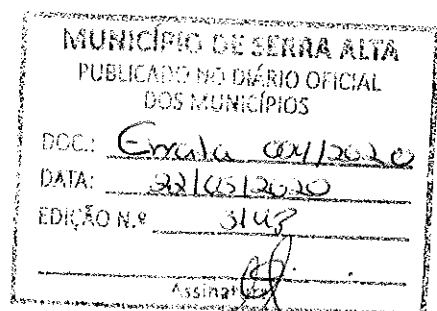 MUNICÍPIO DE SERRA ALTA
PUBLICADO NO DIÁRIO OFICIAL
DOS MUNICÍPIOS
DOC.: Errata 004/2020
DATA: 22/05/2020
EDIÇÃO N.º 3147
Assinatura